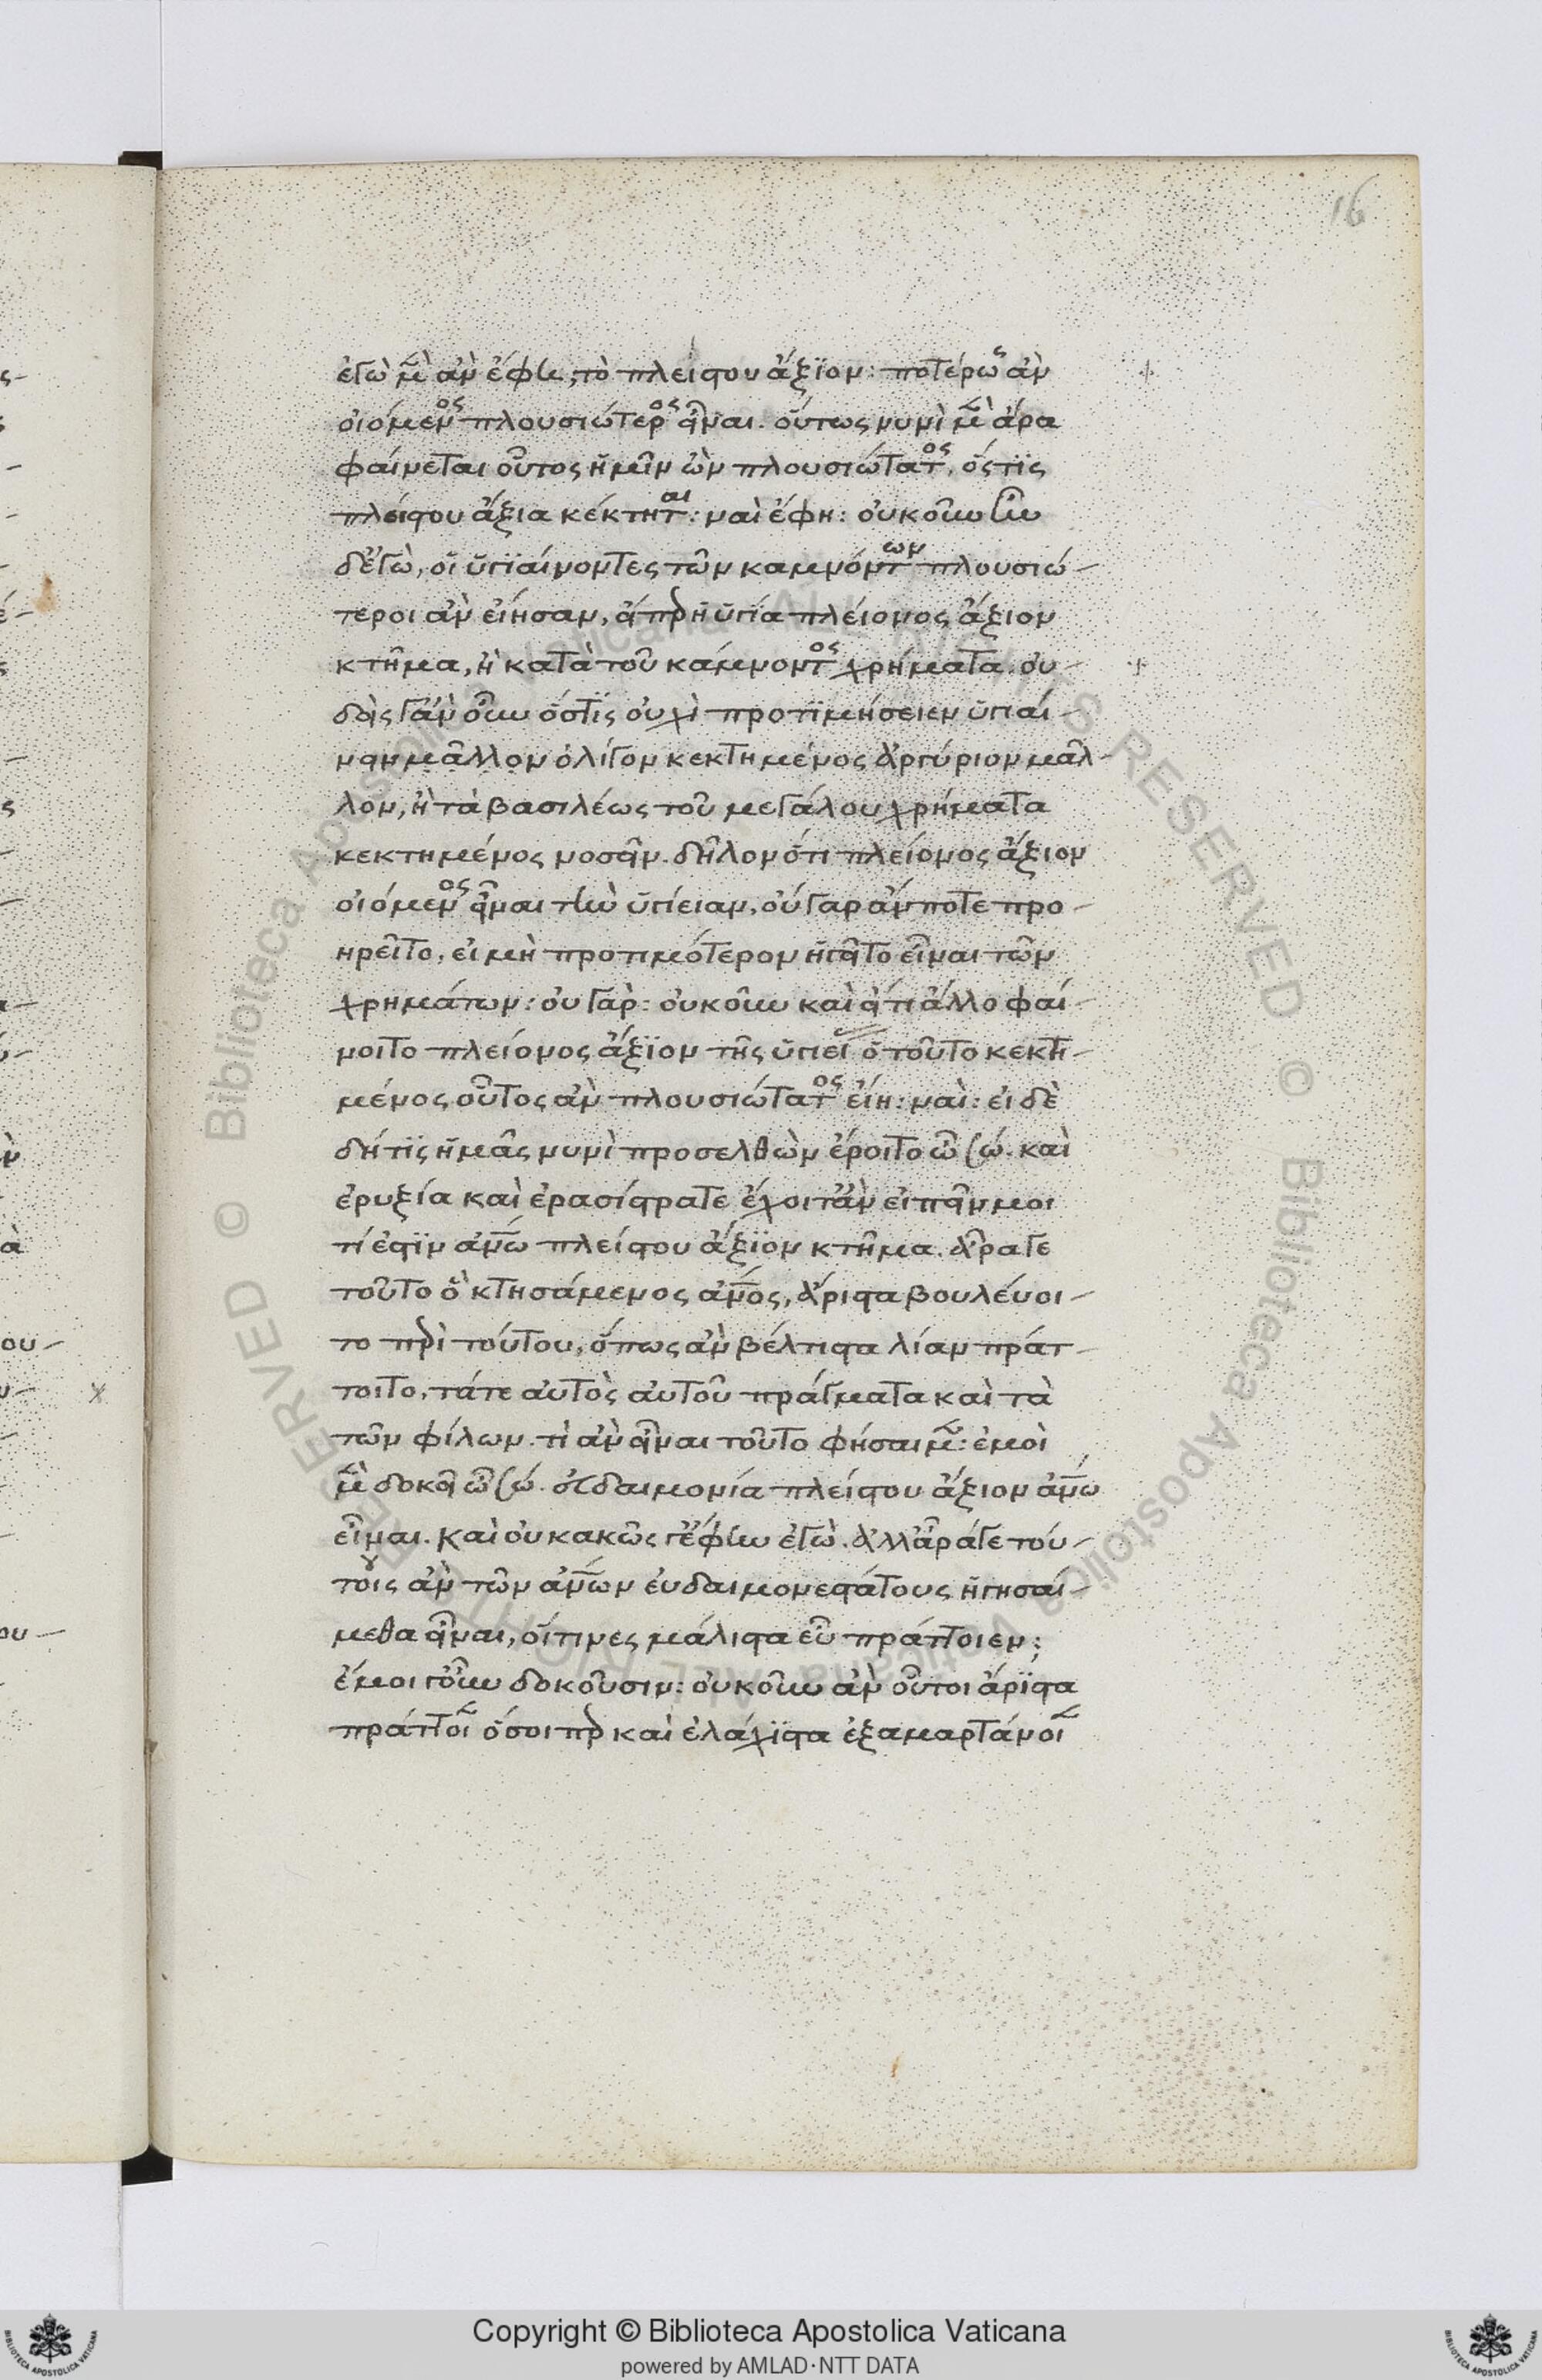 16
ἐγὼ μὲν ἂν ἔφη, τὸ πλείστου ἄξϊον: ποτέρως ἂν
οἰόμενος πλουσιώτερος εἶναι. οὕτως νυνὶ μὲν ἄρα
φαίνεται οὗτος ἡμῖν ὢν πλουσιώτατος, ὅς τϊς
πλείστου ἄξια κέκτηται: ναὶ ἔφη: οὐκοῦν ἦν
δ' ἐγὼ, οἱ ὑγϊαίνοντες τῶν καμνόντων πλουσιώ-
τεροι ἂν εἴησαν, εἴπερ ἡ ὑγία πλείονος ἄξιον
κτῆμα, ἢ κατὰ τοῦ κάμνοντος χρήματα. οὐ-
δεὶς γἂν οὖν ὅστϊς οὐχὶ προτϊμήσειεν ὑγιαί-
νειν μᾶλλον ὀλίγον κεκτημένος ἀργύριον μᾶλ-
λον, ἢ τὰ βασιλέως τοῦ μεγάλου χρήματα
κεκτημένος νοσεῖν. δῆλον ὅτι πλείονος ἄξιον
οἰόμενος εἶναι τὴν ὑγίειαν, οὐ γαρ ἄν ποτε προ-
ηρεῖτο, εἰ μὴ προτιμότερον ἡγεῖτο εἶναι τῶν
χρημάτων: οὐ γὰρ: οὐκοῦν καὶ εἴ τι ἄλλο φαί-
νοιτο πλείονος ἄξϊον τῆς ὑγιεί ὁ τοῦτο κεκτη-
μένος οὗτος ἂν πλουσιώτατος εἴη: ναὶ: εἰ δὲ
δή τϊς ἡμᾶς νυνὶ προσελθὼν ἔροιτο ὦ σώ. καὶ
ἐρυξία καὶ ἐρασίστρατε ἔχοιτ' ἂν εἰπεῖν μοι
τί ἐστϊν ἀνω πλείστου ἄξϊον κτῆμα. ἆρά γε
τοῦτο ὃ κτησάμενος ἀνος, ἄριστα βουλεύοι-
το περὶ τούτου, ὅπως ἂν βέλτιστα λίαν πράτ-
τοιτο, τά τε αὐτὸς αὐτοῦ πράγματα καὶ τὰ
τῶν φίλων. τὶ ἂν εἶναι τοῦτο φήσαιμεν: ἐμοὶ
μὲν δοκεῖ ὦ σώ. εὐδαιμονία πλείστου ἄξιον ἀνω
εἶναι. καὶ οὐ κακῶς γ' ἔφην ἐγὼ. ἀλλ' ἆρά γε τού-
τους ἂν τῶν ἀνων εὐδαιμονεστάτους ἡγησαί-
μεθα εἶναι, οἵτινες μάλιστα εὖ πράττοιεν;
ἔμοι γ' οὖν δοκοῦσιν: οὐκοῦν ἂν οὗτοι ἄρϊστα
πράττοιεν ὅσοι περ καὶ ἐλάχϊστα ἐξαμαρτάνοιεν
Copyright © Biblioteca Apostolica Vaticana
powered by AMLAD·NTT DATA